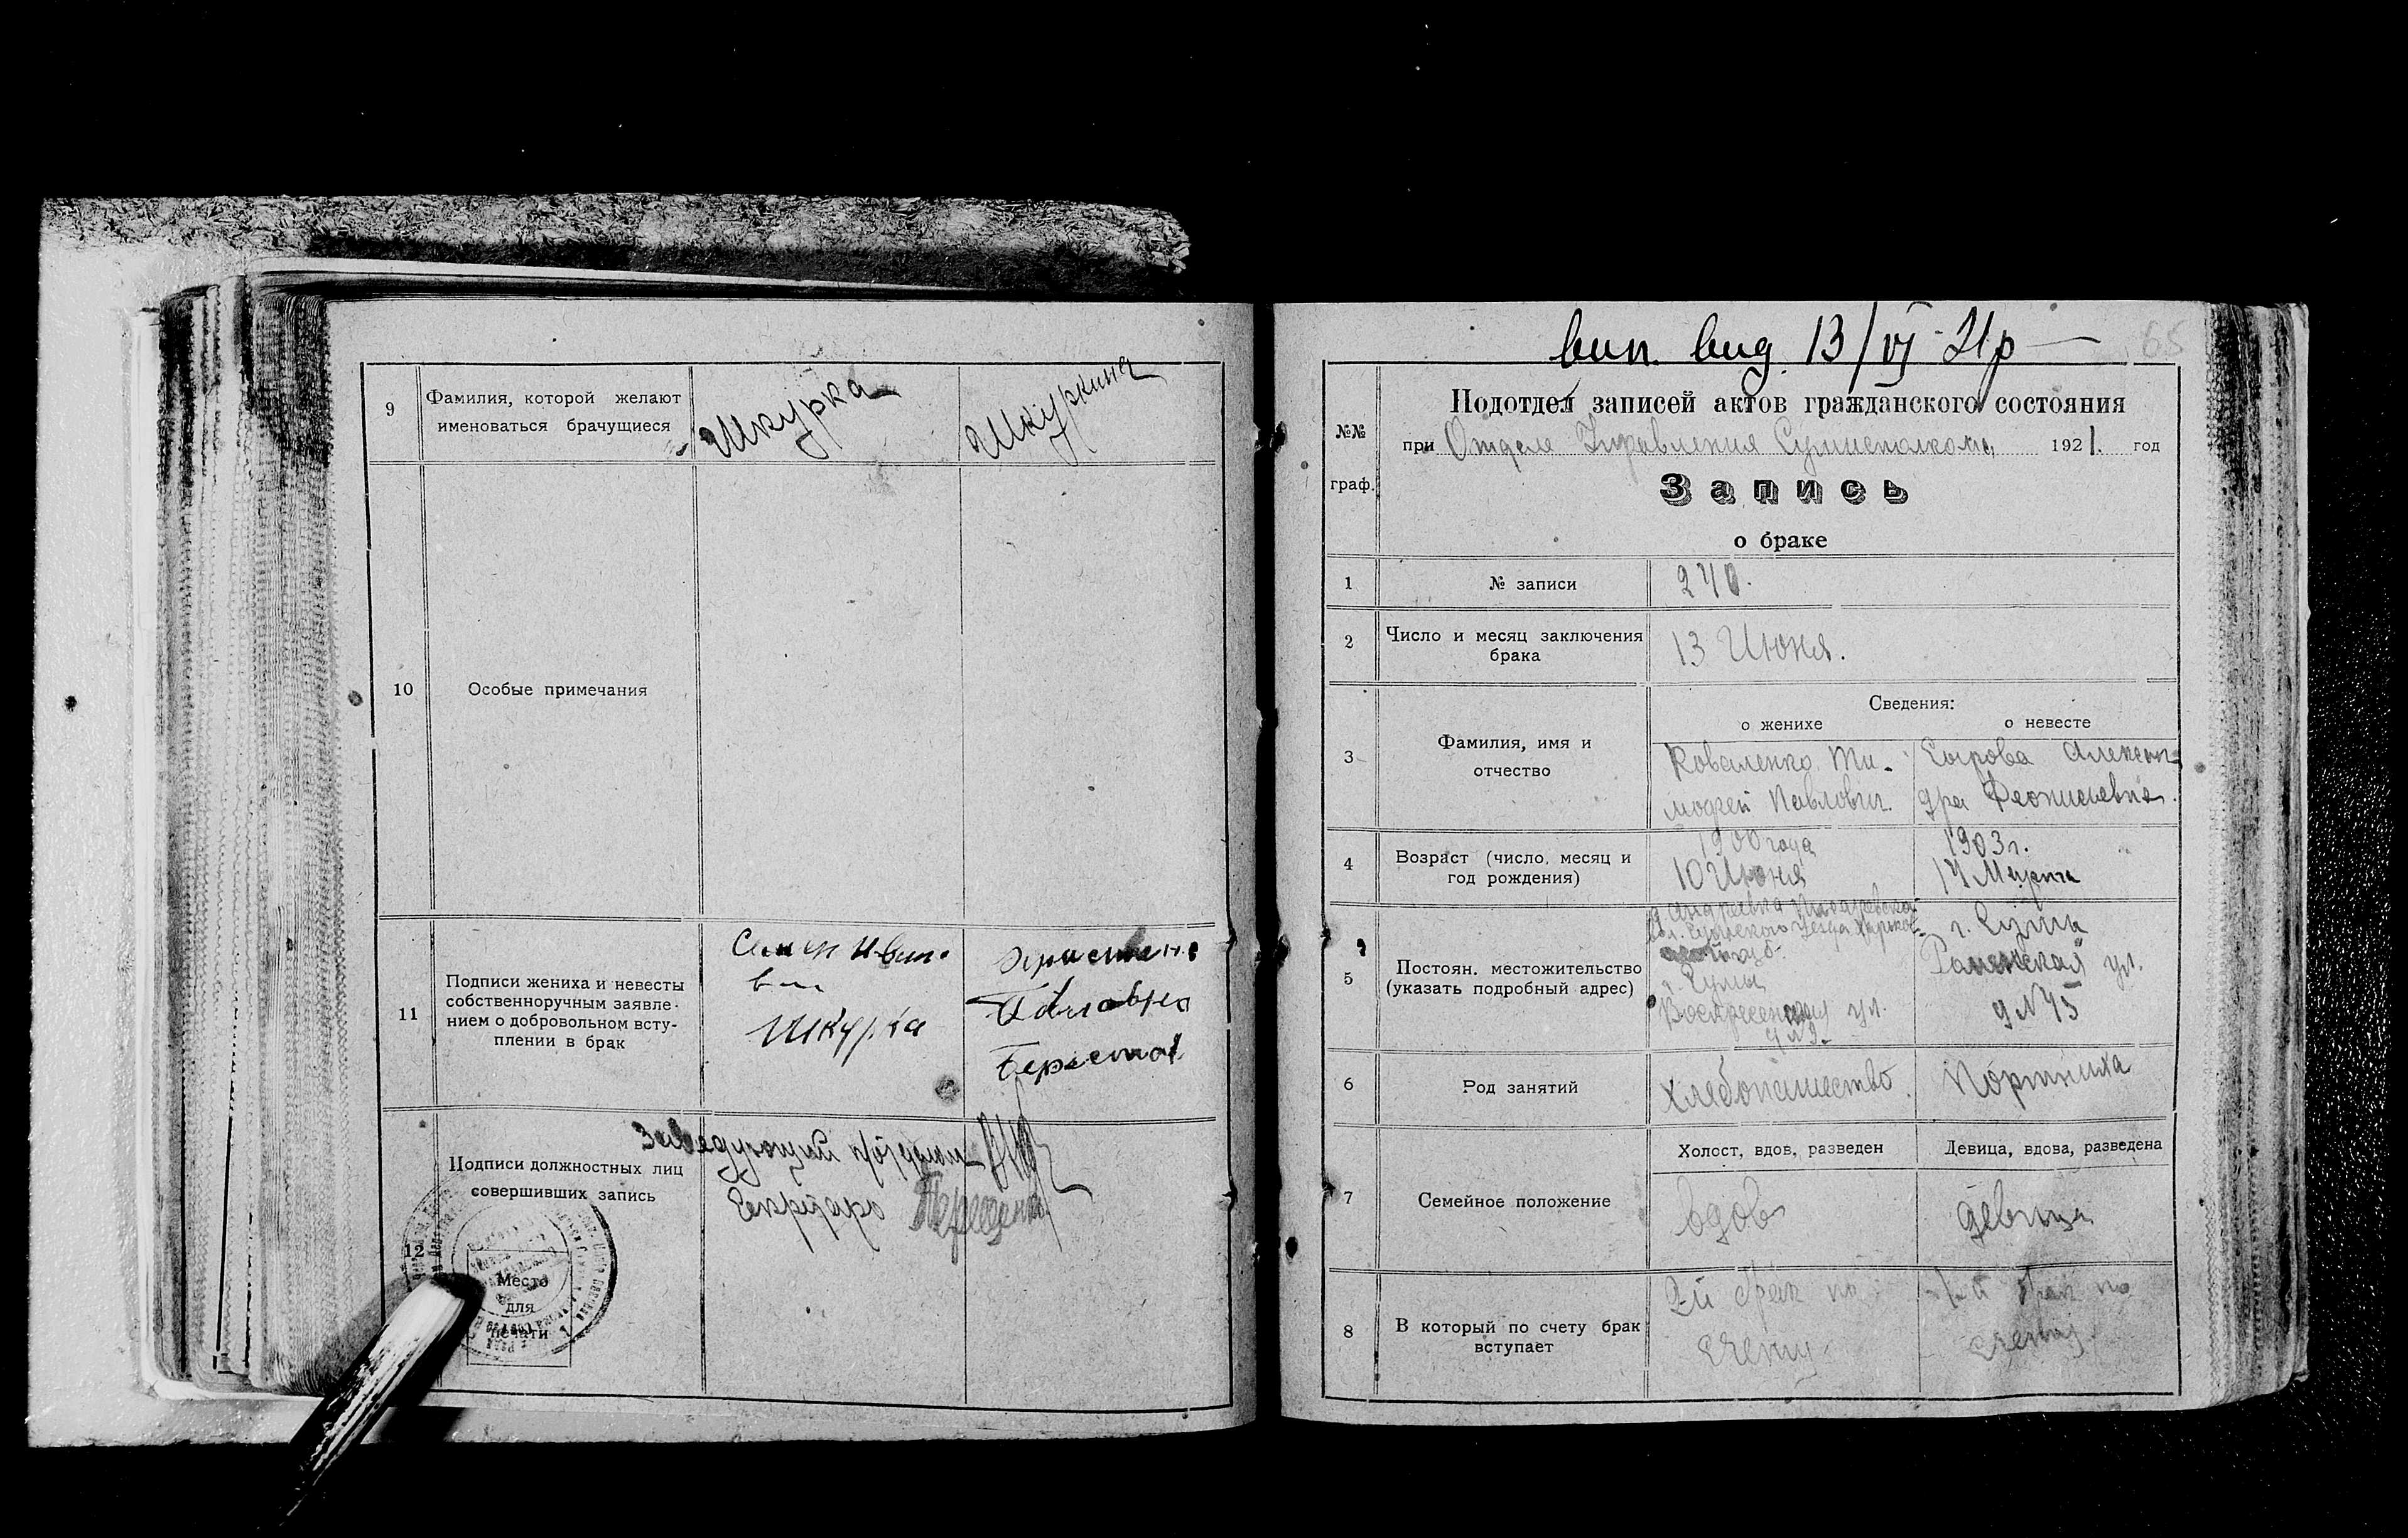 9
Фамилия, которой желают
именоваться брачущиеся
Шкурка
Шкуркина
10
Особые примечания
11
Подписи жениха и невесты
собственноручным заявле-
нием о добровольном всту-
плении в брак
Семен Иван.
вич
Шкурка
Павловна
12
Подписи должностных лиц
совершивших запись
Заведующий п/отделом
Секретарь
Место
для
печати
вип. вид. 13/VI 21 р
65
№№
граф.
Подотдел записей актов гражданского состояния
при Отделе Управления Сумисполкома 1921. год
Запись
о браке
1
№ записи
240.
2
Число и месяц заключения
брака
13 Июня.
3
Фамилия, имя и
отчество
Сведения:
о женихе
о невесте
Коваленко Ти-
мофей Павлович.
Сырова Алексан-
дра Феонисьевна.
4
Возраст (число, месяц и
год рождения)
1900 года
10 Июня
1903 г.
14 Марта
5
Постоян. местожительство
(указать подробный адрес)
Сумского уезда
г. Сумы
Воскресенская ул.
д №9.
г. Сумы
ул.
д №45
6
Род занятий
Хлебопашество
Портниха
7
Семейное положение
Холост, вдов, разведен
Девица, вдова, разведена
вдов
девица
8
В который по счету брак
вступает
2й брак по
счету
1й брак по
счету